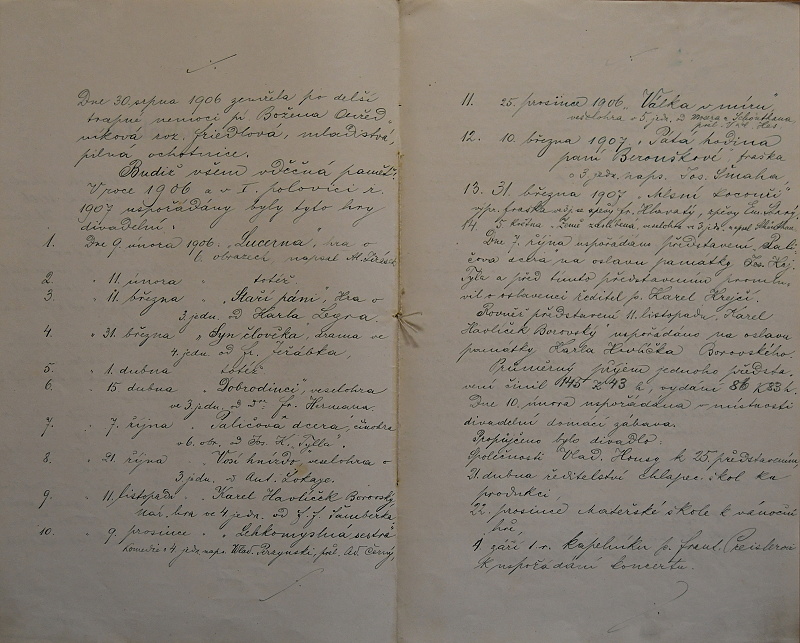 Dne 30. srpna 1906 zemřela po delší
trapné nemoci pí Božena Ondřed-
níková roz. Friedlova, mladistvá,
pilná ochotnice.
Budiž všem vděčná paměť.
V roce 1906 a v I. polovici r.
1907 uspořádány byly tyto hry
divadelní.
1. Dne 9. února 1906 „Lucerna", hra o
obrazech, napsal A. Jirásek
2. " 11. února " totéž.
3. " 11. března " „Staří páni", Hra o
3 jedn. od Karla Legra.
4. " 31. března " „Syn člověka", drama ve
4 jedn. od Fr. Jeřábka,
5. " 1. dubna " totéž
6. " 15. dubna " „Dobrodinci", veselohra
ve 3 jedn. od Fr. Hermana.
7. " 7. října " „Paličova dcera", činohra
v 6. obr. od Jos. K. Tylla".
8. " 21. října " „Vosí hnízdo" veselohra o
3 jedn. od Ant. Lokaje.
9. " 11. listopadu " „Karel Havlíček Borovský
nár. hra ve 4 jedn. od F. J. Šamberka
10. " 9. prosince " „Lehkomyslná sestra
komedie o 4 jedn. naps. Wlad. Perzynski, přel. Ad. Černý,
11. 25. prosince 1906 „Válka v míru"
veselohra o 5 jed. od Mosra a Schönthana
12. 10. března 1907 „Pátá hodina
paní Beronškové, fraška
o 3 jedn. naps. Jos. Šmaha.
13. 31. března 1907 „Mlsní kocouři"
výpr. fraška se zpěvy Fr. Hlavatý, zpěvy Em. Starý
14. 5. května „Země zaslíbená, veselohra o 3 jed. napsal
Dne 7. října uspořádám představení Pali-
čova dcera na oslavu památky Jos. Kaj.
Tyla a před tímto představením promlu-
vil o oslavenci ředitel p. Karel Krejčí.
Rovněž představení 11. listopadu, Karel
Havlíček Borovský uspořádáno na oslavu
památky Karla Havlíčka Borovského.
Průměrný příjem jednoho předsta-
vení činil 145 K 43 h, vydání 86 K 33 h.
Dne 10. února uspořádána v místnosti
divadelní domácí zábava.
Propůjčeno bylo divadlo:
Společnosti Vlad. Housy k 25. představením,
21. dubna ředitelství chlapec. škol ku
produkci,
22. prosince Mateřské škole k vánoční
hře,
9. září t. r. kapelníku p. Frant.
k uspořádání koncertu.